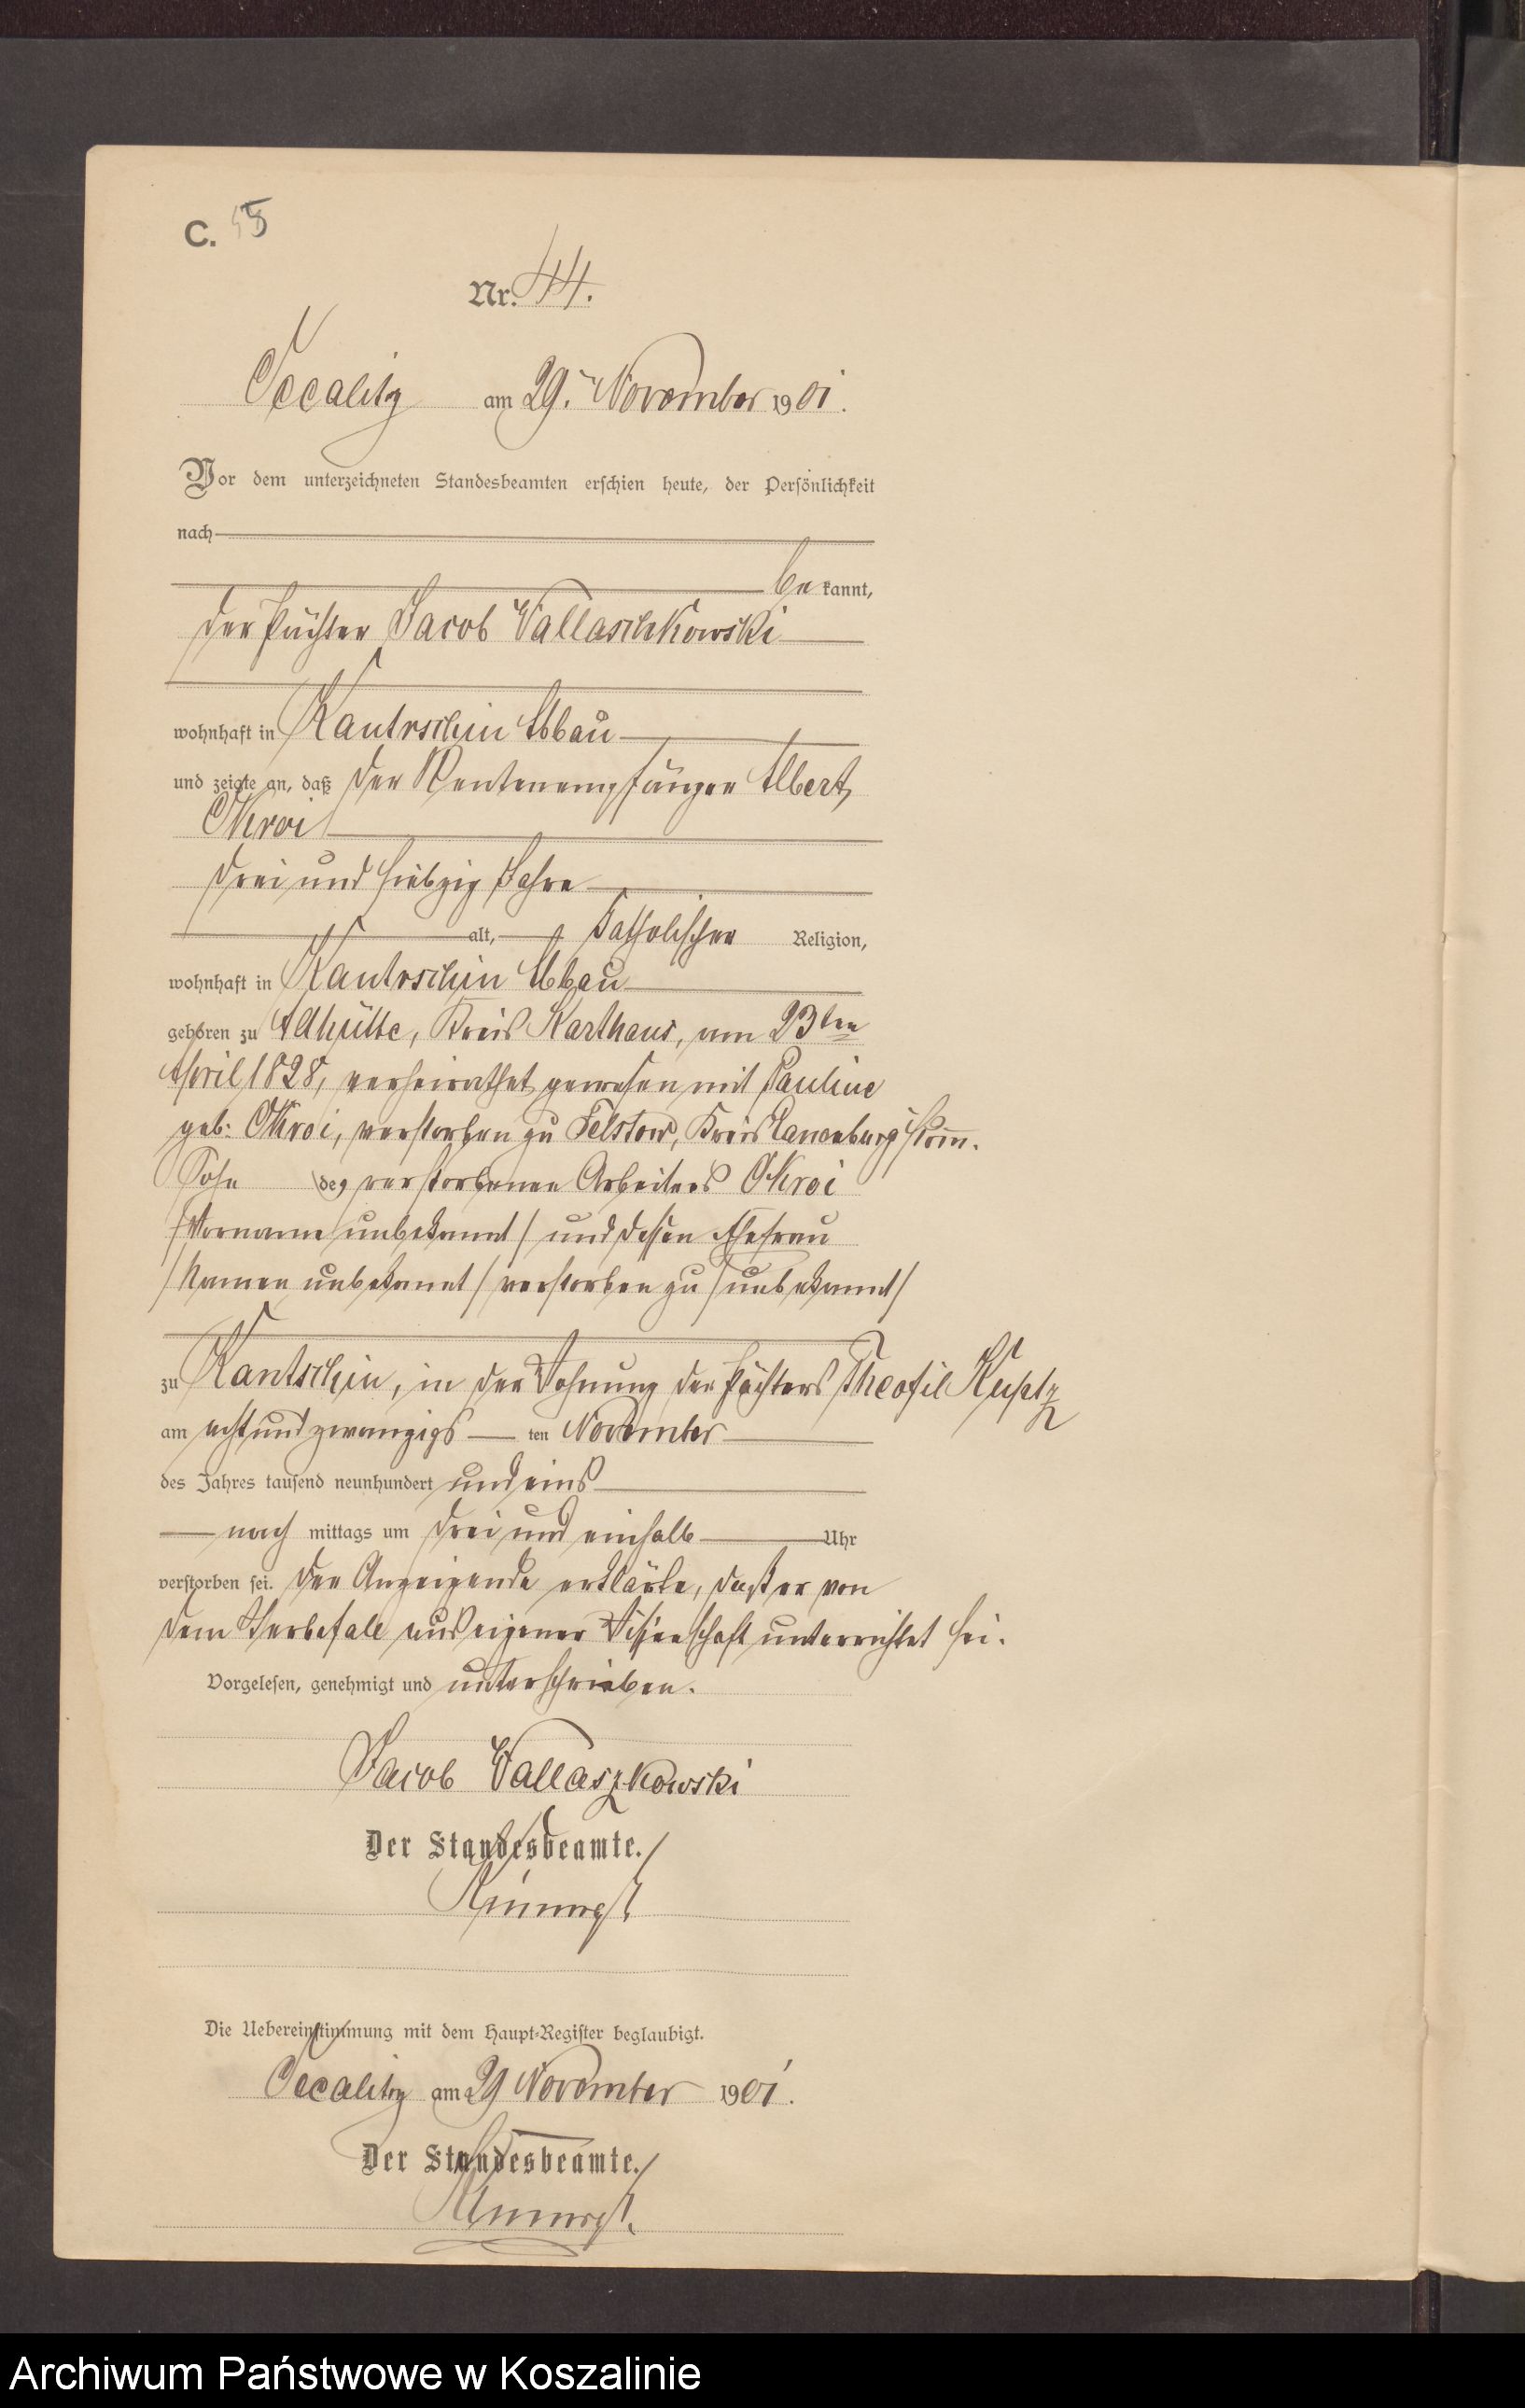 C. 45
Nr. 44.
Occalitz am 29. November 1901.
Vor dem unterzeichneten Standesbeamten erschien heute, der Persönlichkeit
nach
bekannt,
der Pächter Jacob Wallaschkowski
wohnhaft in Kantrschin Abbau
und zeigte an, daß der Rentenempfänger Albert
Okroi
drei und siebzig Jahre
alt, katholischer Religion,
wohnhaft in Kantrschin Abbau
geboren zu Adhütte, Kreis Karthaus, am 23ten
April 1828, verheirathet gewesen mit Pauline
geb: Okroi, verstorben zu Felstow, Kreis Lauenburg i/Pomm.
Sohn des verstorbenen Arbeiters Okroi
/Vorname unbekannt/ und dessen Ehefrau
/Namen unbekannt/ verstorben zu /unbekannt/
zu Kantschin, in der Wohnung des Pächters Theofil Kuptz
am acht und zwanzigs ten November
des Jahres tausend neunhundert und eins
nach mittags um drei und einhalb Uhr
verstorben sei. Der Anzeigende erklärte, daß er von
dem Sterbefall aus eigener Wissenschaft unterrichtet sei.
Vorgelesen, genehmigt und unterschrieben.
Jacob Wallaszkowski
Der Standesbeamte.
Die Uebereinstimmung mit dem Haupt-Register beglaubigt.
Occalitz am 29 November 1901.
Der Standesbeamte.
Archiwum Państwowe w Koszalinie